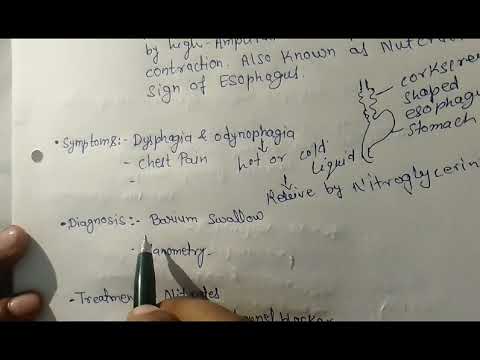 by high-Ampli
contraction. Also Known as Nutcr
sign of Esophagus.
corkscre
shaped
esophagu
stomach
• Symptoms:- Dysphagia & odynophagia
- Chest Pain hot or cold
liquid
-
Releive by Nitroglycerin
• Diagnosis:- Barium Swallow
anometry-
• Treatmen Nitrates